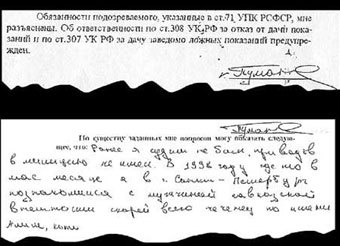 Обязанности подозреваемого, указанные в ст.71 УПК РСФСР, мне
разъяснены. Об ответственности по ст.308 УК РФ за отказ от дачи пока-
заний и по ст.307 УК РФ за дачу заведомо ложных показаний предупре-
жден.
По существу заданных мне вопросов могу показать следую-
щее, что: Ранее я судим не был, приводов
в милицию не имел. В 1996 году где-то в
мае месяце я в г. Санкт-Петербург
познакомился с мужчиной кавказской
внешности скорей всего чеченец по имени